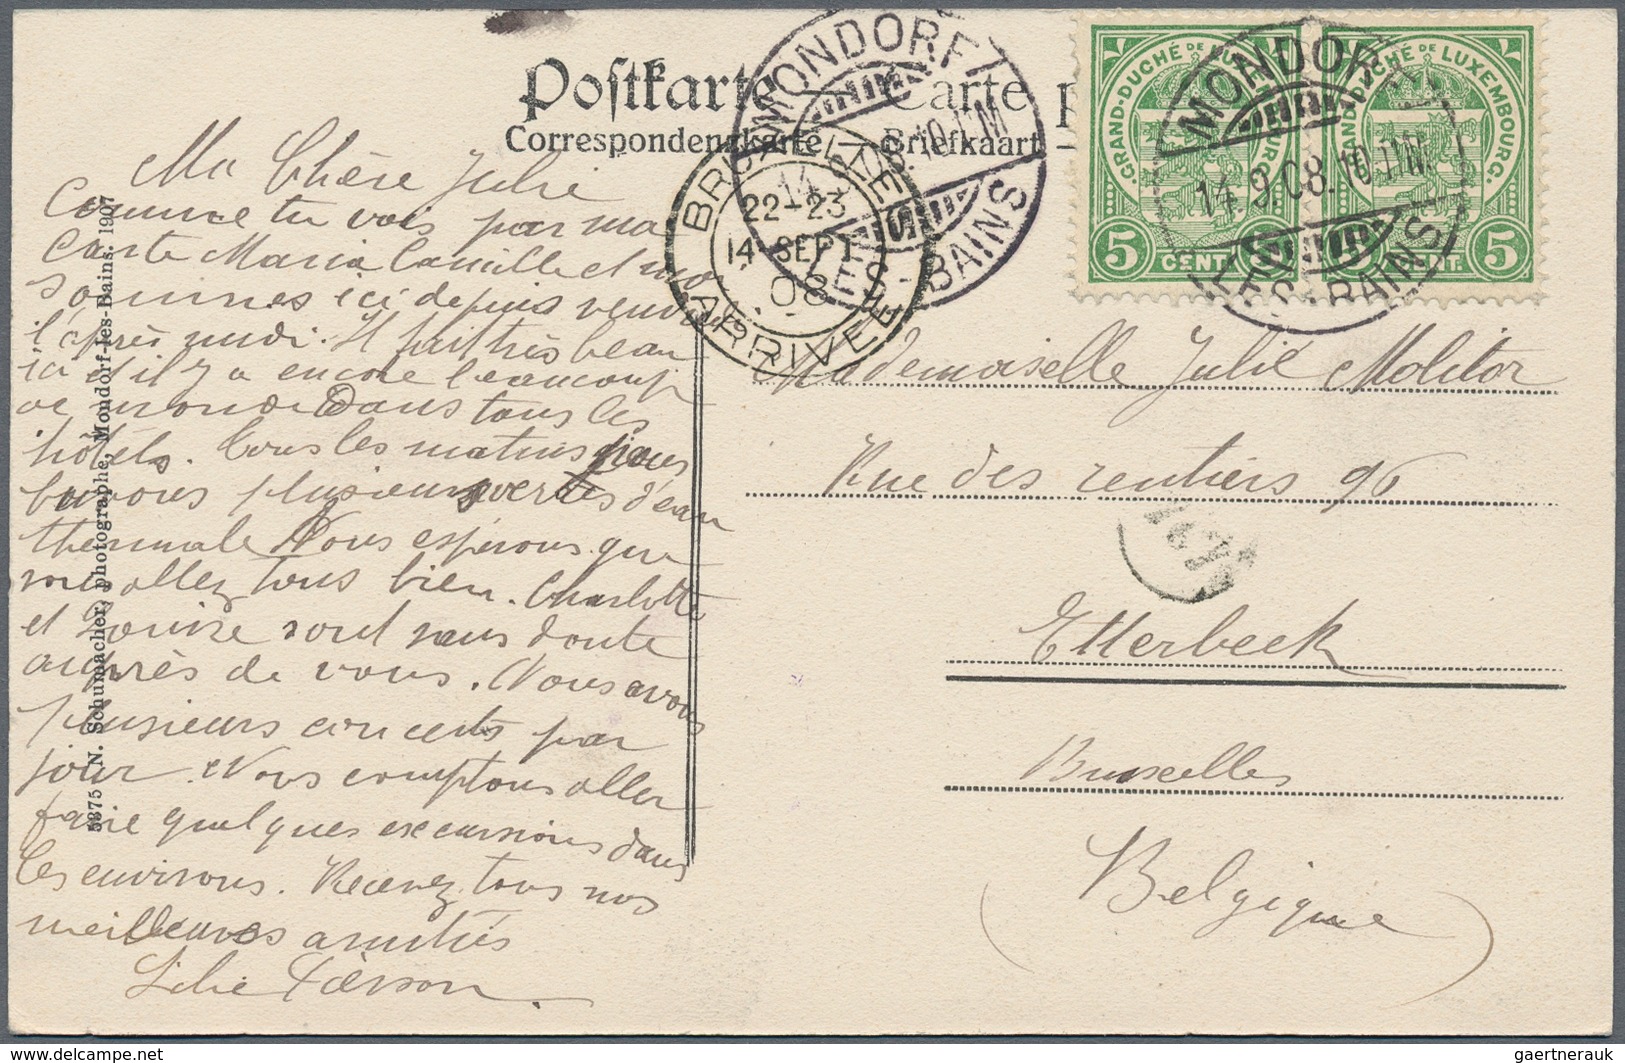 Postkarte Carte
Correspondenzkarte Briefkaart
MONDORF
LES-BAINS
14.9.08.10.11M
BRUXELLES
22-23
14 SEPT
08
ARRIVEE
GRAND-DUCHÉ DE LUXEMBOURG.
5 CENT. 5
GRAND-DUCHÉ DE LUXEMBOURG.
5 CENT. 5
MONDORF
LES-BAINS
14.9.08.10.11M.
Ma Chère Julie
Comme tu vois par ma
Carte Maria Camille et moi
sommes ici depuis
l'après midi. Il fait très beau
ici et il y a encore beaucoup
de monde Dans tous les
hôtels. Tous les matins nous
buvons plusieurs verres d'eau
thermale Nous espérons que
vous allez tous bien. Charlotte
et Louise sont sans doute
auprès de vous. Nous avons
plusieurs concerts par
jour. Nous comptons aller
faire quelques excursions dans
les environs. Recevez tous nos
meilleures amitiés
Pierson
5375 N. Schumacher, photographe, Mondorf-les-Bains. 1907
Mademoiselle Julie Molitor
Rue des rentiers 96
Etterbeck
Bruxelles
(Belgique)
www.delcampe.net
gaertnerauk